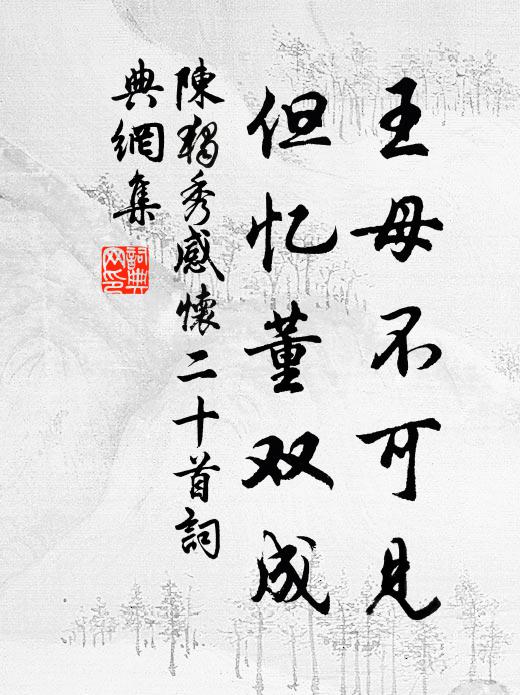 王母不可見
但忆董双成
陳獨秀感懷二十首詞
典網集
詞典
网印